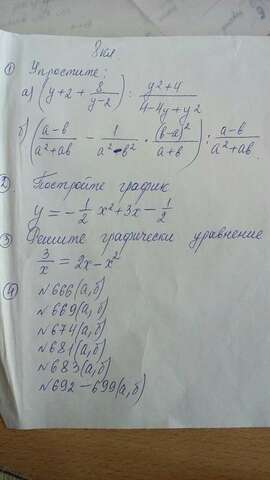 8 кл.
① Упростите:
а) (y+2 + 8/(y-2)) : (y²+4)/(4-4y+y²)
б) ((a-b)/(a²+ab) - 1/(a²-b²) · (b-a)²/(a+b)) : (a-b)/(a²+ab)
② Постройте график
y = -1/2 x² + 3x - 1/2
③ Решите графически уравнение
3/x = 2x - x²
④ №666(а,б)
№669(а,б)
№674(а,б)
№681(а,б)
№683(а,б)
№692-699(а,б)